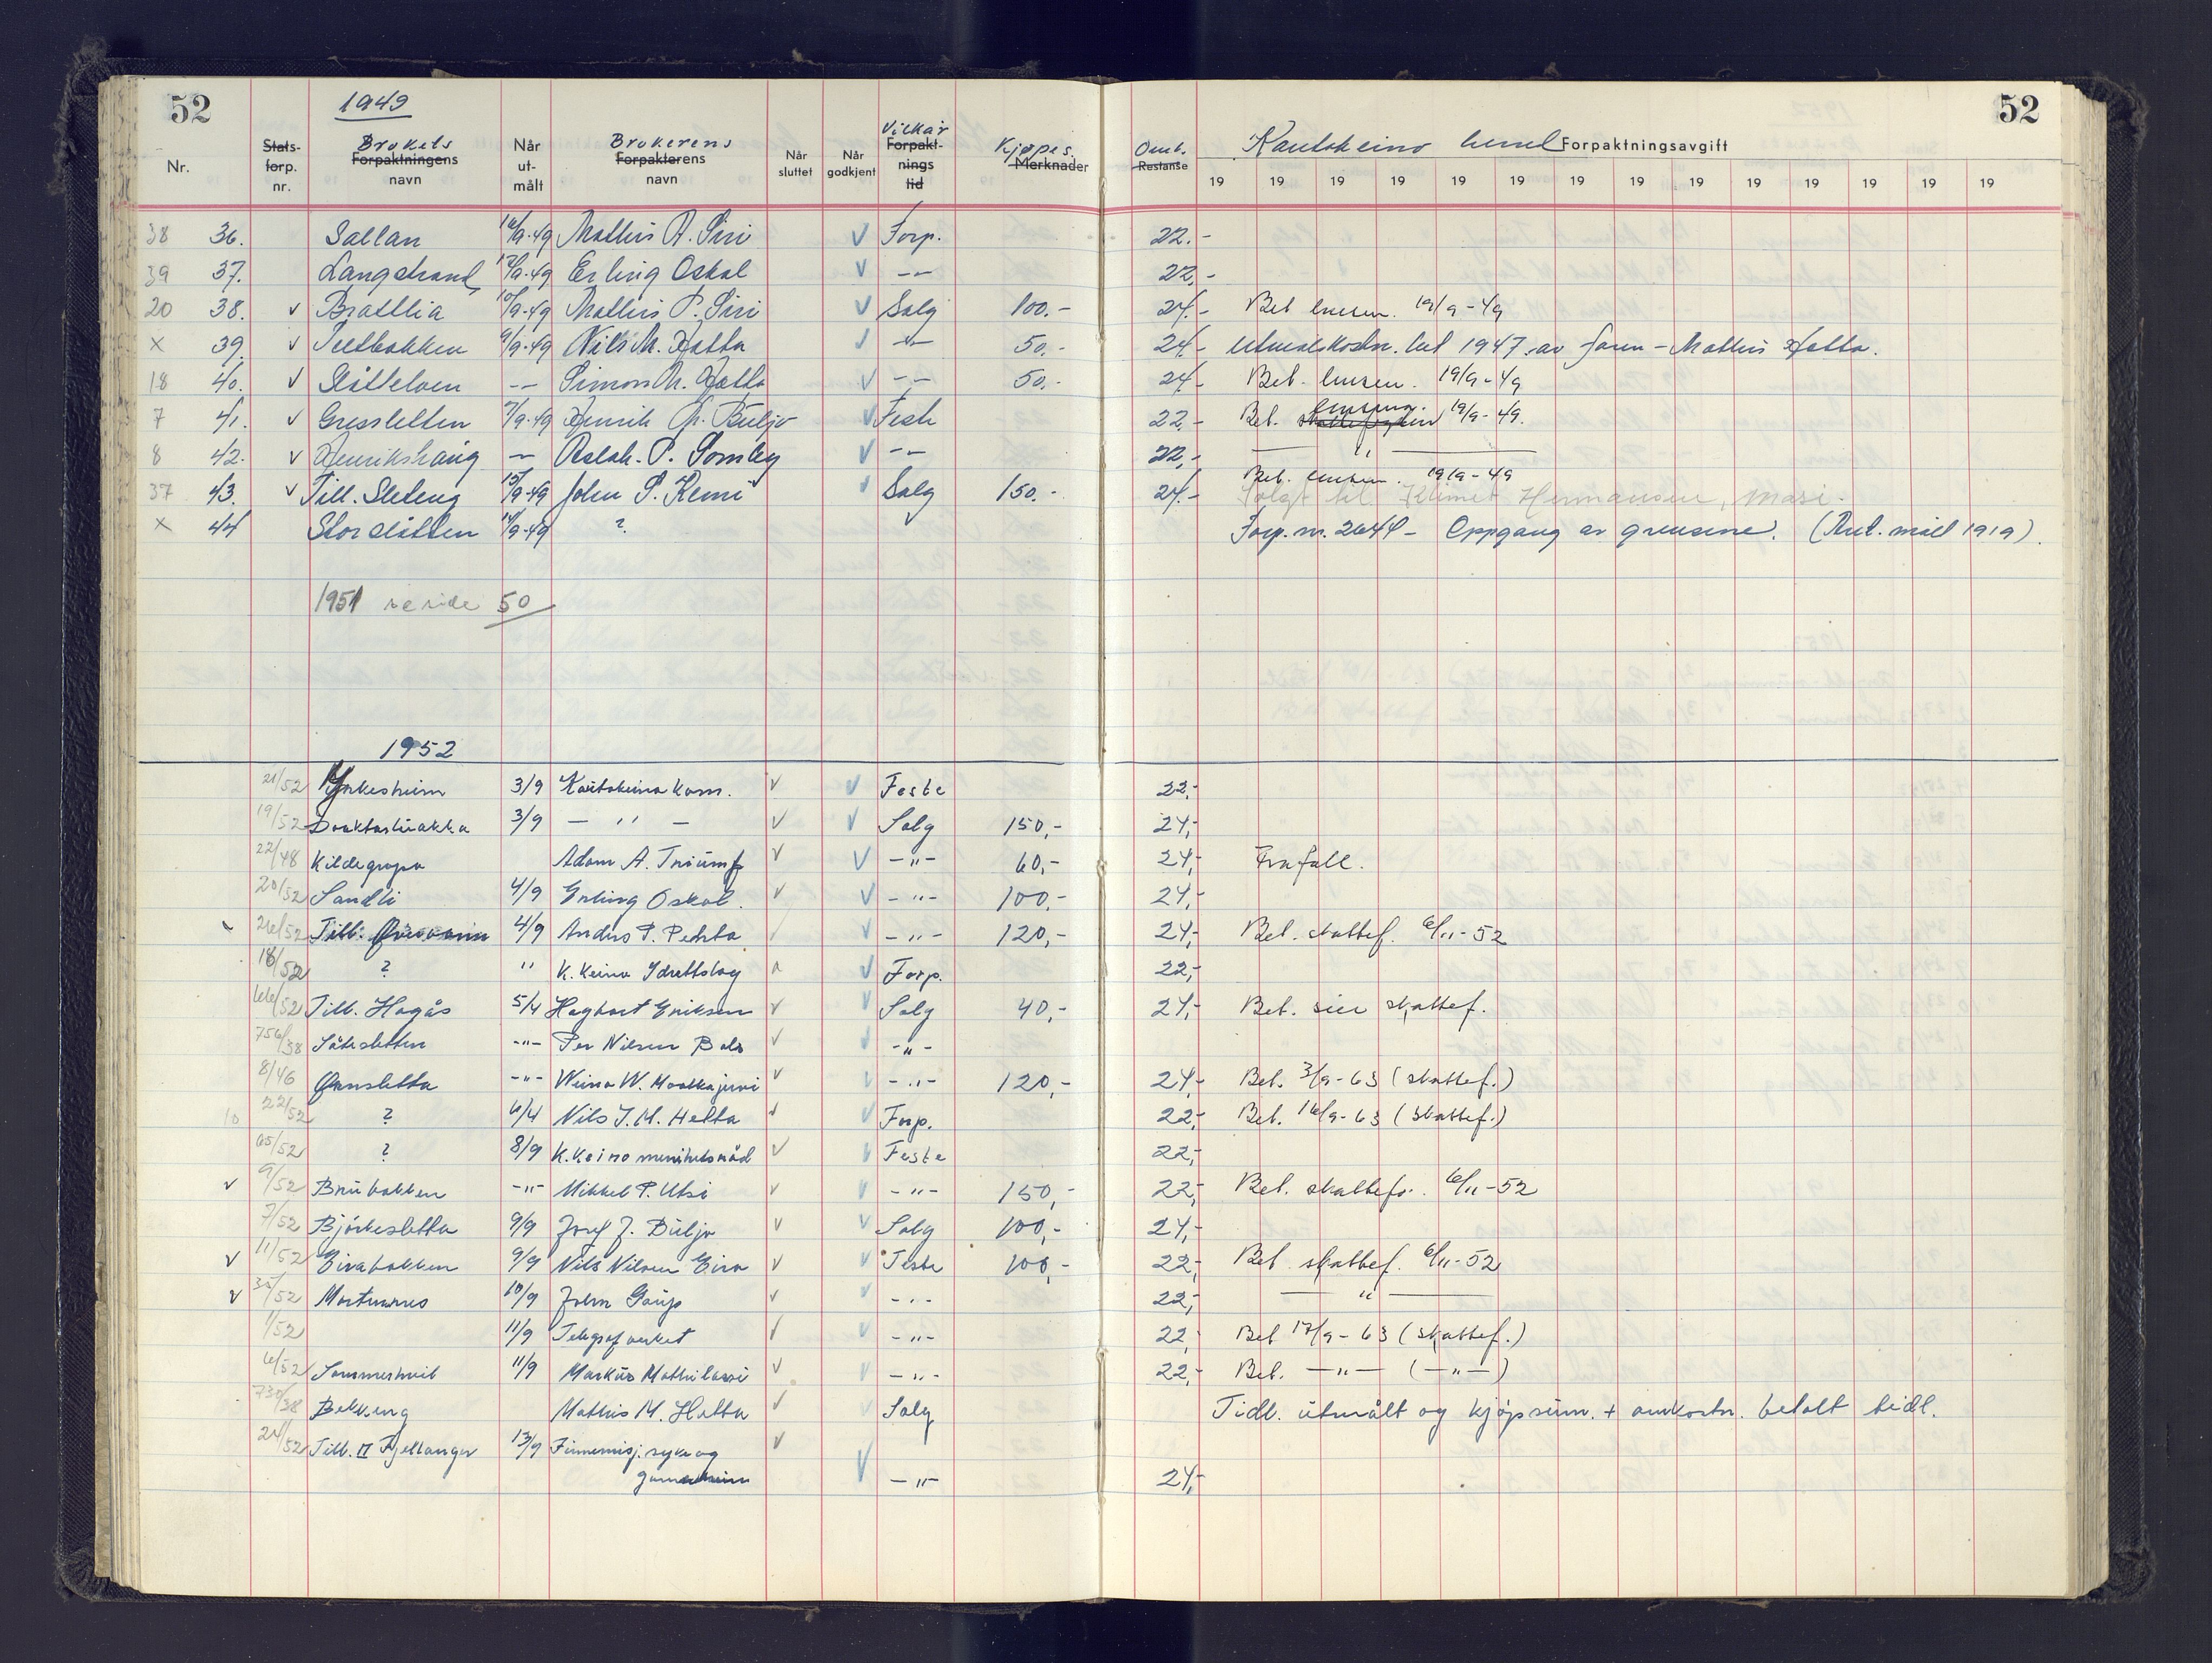 52 1949 52
Nr. Stats-forp. nr. Brukets Forpaktningens navn Når ut-målt Brukerens Forpakterens navn Når sluttet Når godkjent Vilkår Forpakt-nings tid Kjøpes. Merknader Omk. Restanse Kautokeino herred Forpaktningsavgift
19 19 19 19 19 19 19 19 19 19 19 19 19 19
38 36. Sallan 16/9-49 Mathis A. Siri V Forp. 22.-
39 37. Langstrand 12/9-49 Erling Oskal V -- 22,-
20 38. v Brattlia 10/9-49 Mathis P. Siri V Salg 100.- 24.- Bet lensm. 19/9-49
x 39. v 9/9-49 Nils M. Hætta V -- 50.- 24.- Utmålskostn. bet 1947 av faren - Mathis Hætta.
18 40. v -- Simon M. Hætta V -- 50.- 24.- Bet. lensm. 19/9-49
7 41. v Gressletten 7/9-49 Henrik Buljo V Feste 22.- Bet. lensm. 19/9-49.
8 42. v Henrikshaug — Aslak P. Somby V -- 22,- — " —
37 43. v Till. Sleteng 15/9-49 John S. Kemi v Salg 150.- 24.- Bet. lensm. 19/9-49
Solgt til Klimet Hermansen, Masi.
x 44 Storslåtten 14/9-49 ? v Forp. nr. 2644 - Oppgang av grensene. (Aut. mål 1919).
1951 se side 50
1952
21/52 Yrkesheim 3/9 Kautokeino kom. v V Feste 22,-
19/52 3/9 — " — v V Salg 150,- 24,-
22/48 Kildegropa Adam A. Triumf v V -"- 60,- 24,- Frafall.
20/52 Sandli 4/9 Erling Oskal. v V -"- 100,- 24,-
26/52 Till. 4/9 Anders P. V -"- 120,- 24,- Bet. skattef. 6/11-52
18/52 ? " K.keino Idrettslag V Forp. 22,-
66/52 Till. Hagås 5/4 Hagbart Eriksen v V Salg 40,- 24,- Bet. skattef.
756/38 Såtesletten -"- Per Nilsen Bals v V -"-
8/46 -"- Weino W. Maatkajervi v V -"- 120,- 24,- Bet. 3/9-63 (skattef.)
10 22/52 ? 6/4 Nils J. M. Hætta v V Forp. 22,- Bet. 16/9-63 (skattef.)
65/52 ? 8/9 K.keino menihetsråd v V Feste 22,-
v 9/52 Brubakken -"- Mikkel P. Utsi v V -"- 150,- 22,- Bet. skattef. 6/11-52
7/52 Bjørkesletta 9/9 Josef J. Buljo v V Salg 100,- 24,-
v 11/52 Eirabakken 9/9 Nils Nilsen Eira v V Feste 100,- 22,- Bet. skattef. 6/11-52
v 35/52 10/9 John Gaup v V -"- 22,- — " —
1/52 11/9 Telegrafverket v V -"- 22,- Bet 17/9-63 (skattef.)
6/52 Sommerhvil 11/9 Markus Mathilassi v V -"- 22,- Bet. —"— (—"—)
730/38 Bekkeng Mathis M. Hætta v V Salg Tidl. utmålt og kjøpsum. + omkostn. betalt tidl.
24/52 Till. II Fjellanger 13/9 Finnemisj. syke og v
gamleheim V -"- 24,-